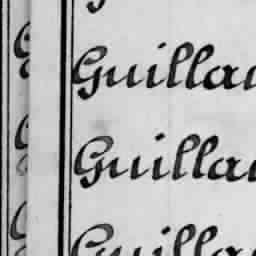 Guillau
Guillau
Guilla